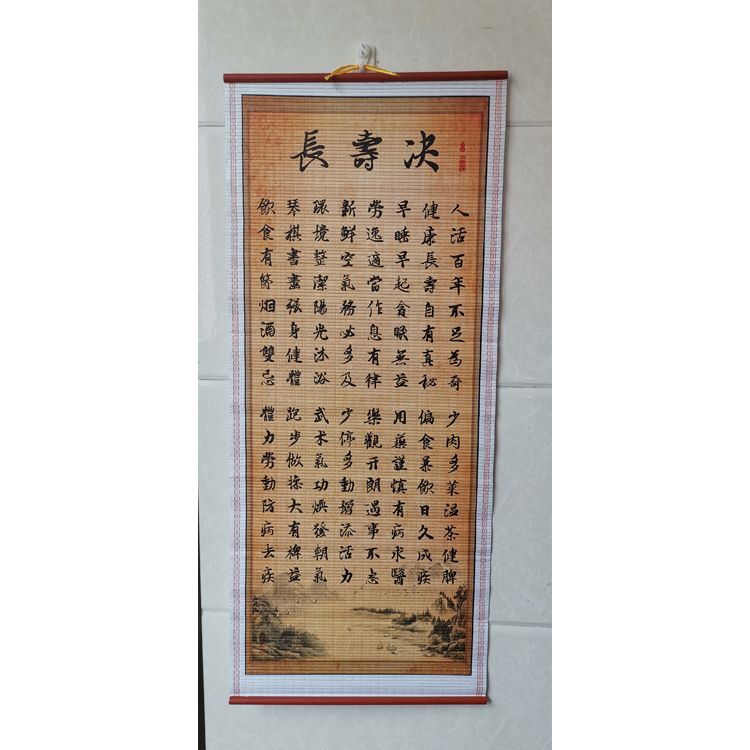 長壽决
人活百年不足為奇
健康長壽自有真秘
早睡早起貪眠無益
勞逸適當作息有律
新鮮空氣務必多及
環境整潔陽光沐浴
琴棋書畫强身健體
飲食有節烟酒雙忌
少肉多菜温茶健脾
偏食暴飲日久成疾
用藥謹慎有病求醫
樂觀开朗遇事不急
少停多動增添活力
武术氣功焕發朝氣
跑步做操大有裨益
體力勞動防病去疾